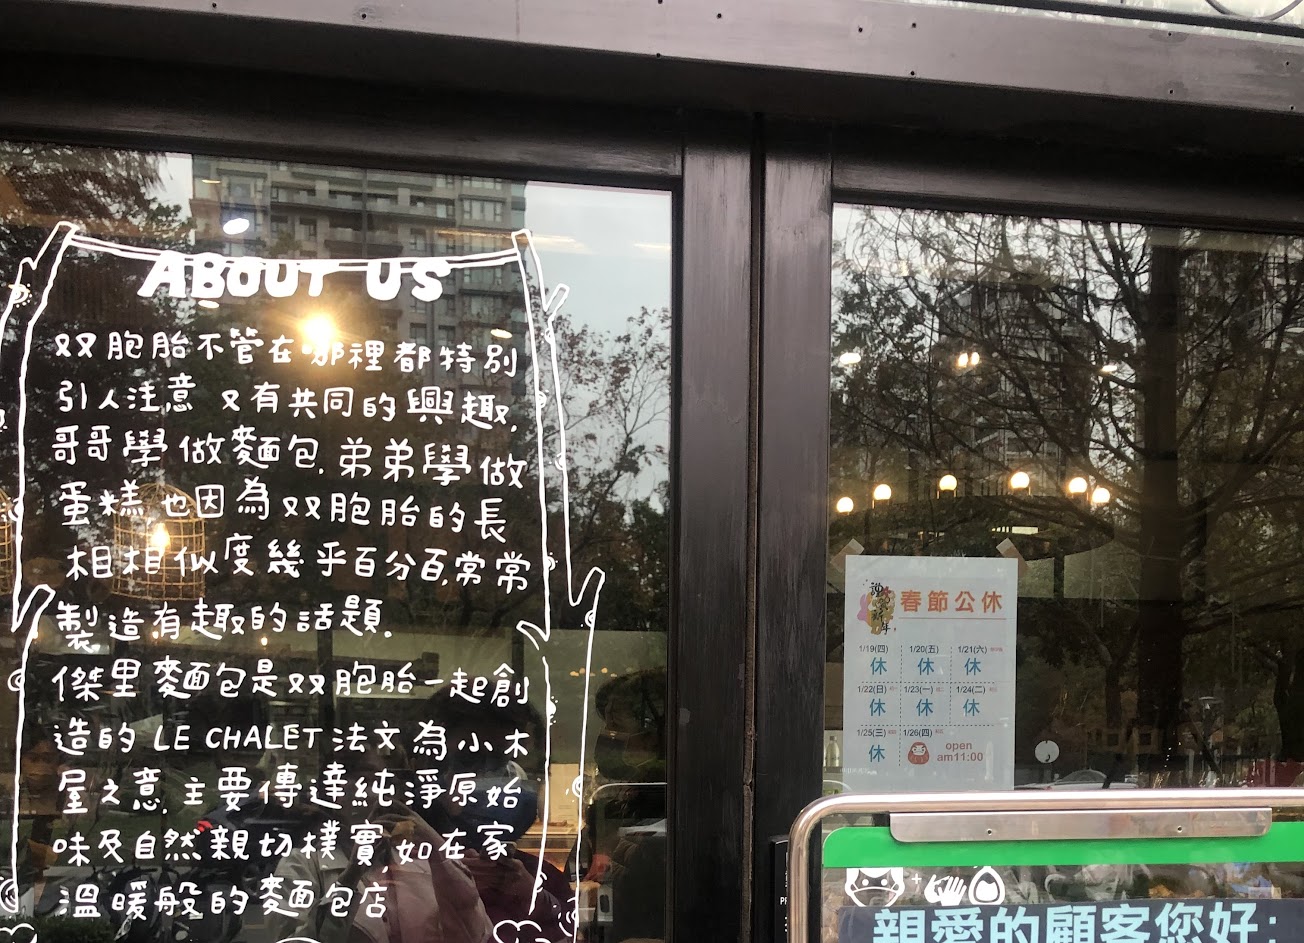 ABOUT US
双胞胎不管在哪裡都特別
引人注意 又有共同的興趣.
哥哥學做麵包.弟弟學做
蛋糕也因為双胞胎的長
相相似度幾乎百分百.常常
製造有趣的話題.
傑里麵包是双胞胎一起創
造的 LE CHALET 法文為小木
屋之意.主要傳達純淨原始
味及自然親切樸實,如在家
溫暖般的麵包店
春節公休
1/19(四) 1/20(五) 1/21(六)
休 休 休
1/22(日) 1/23(一) 1/24(二)
休 休 休
1/25(三) 1/26(四)
休 open
am11:00
親愛的顧客您好: